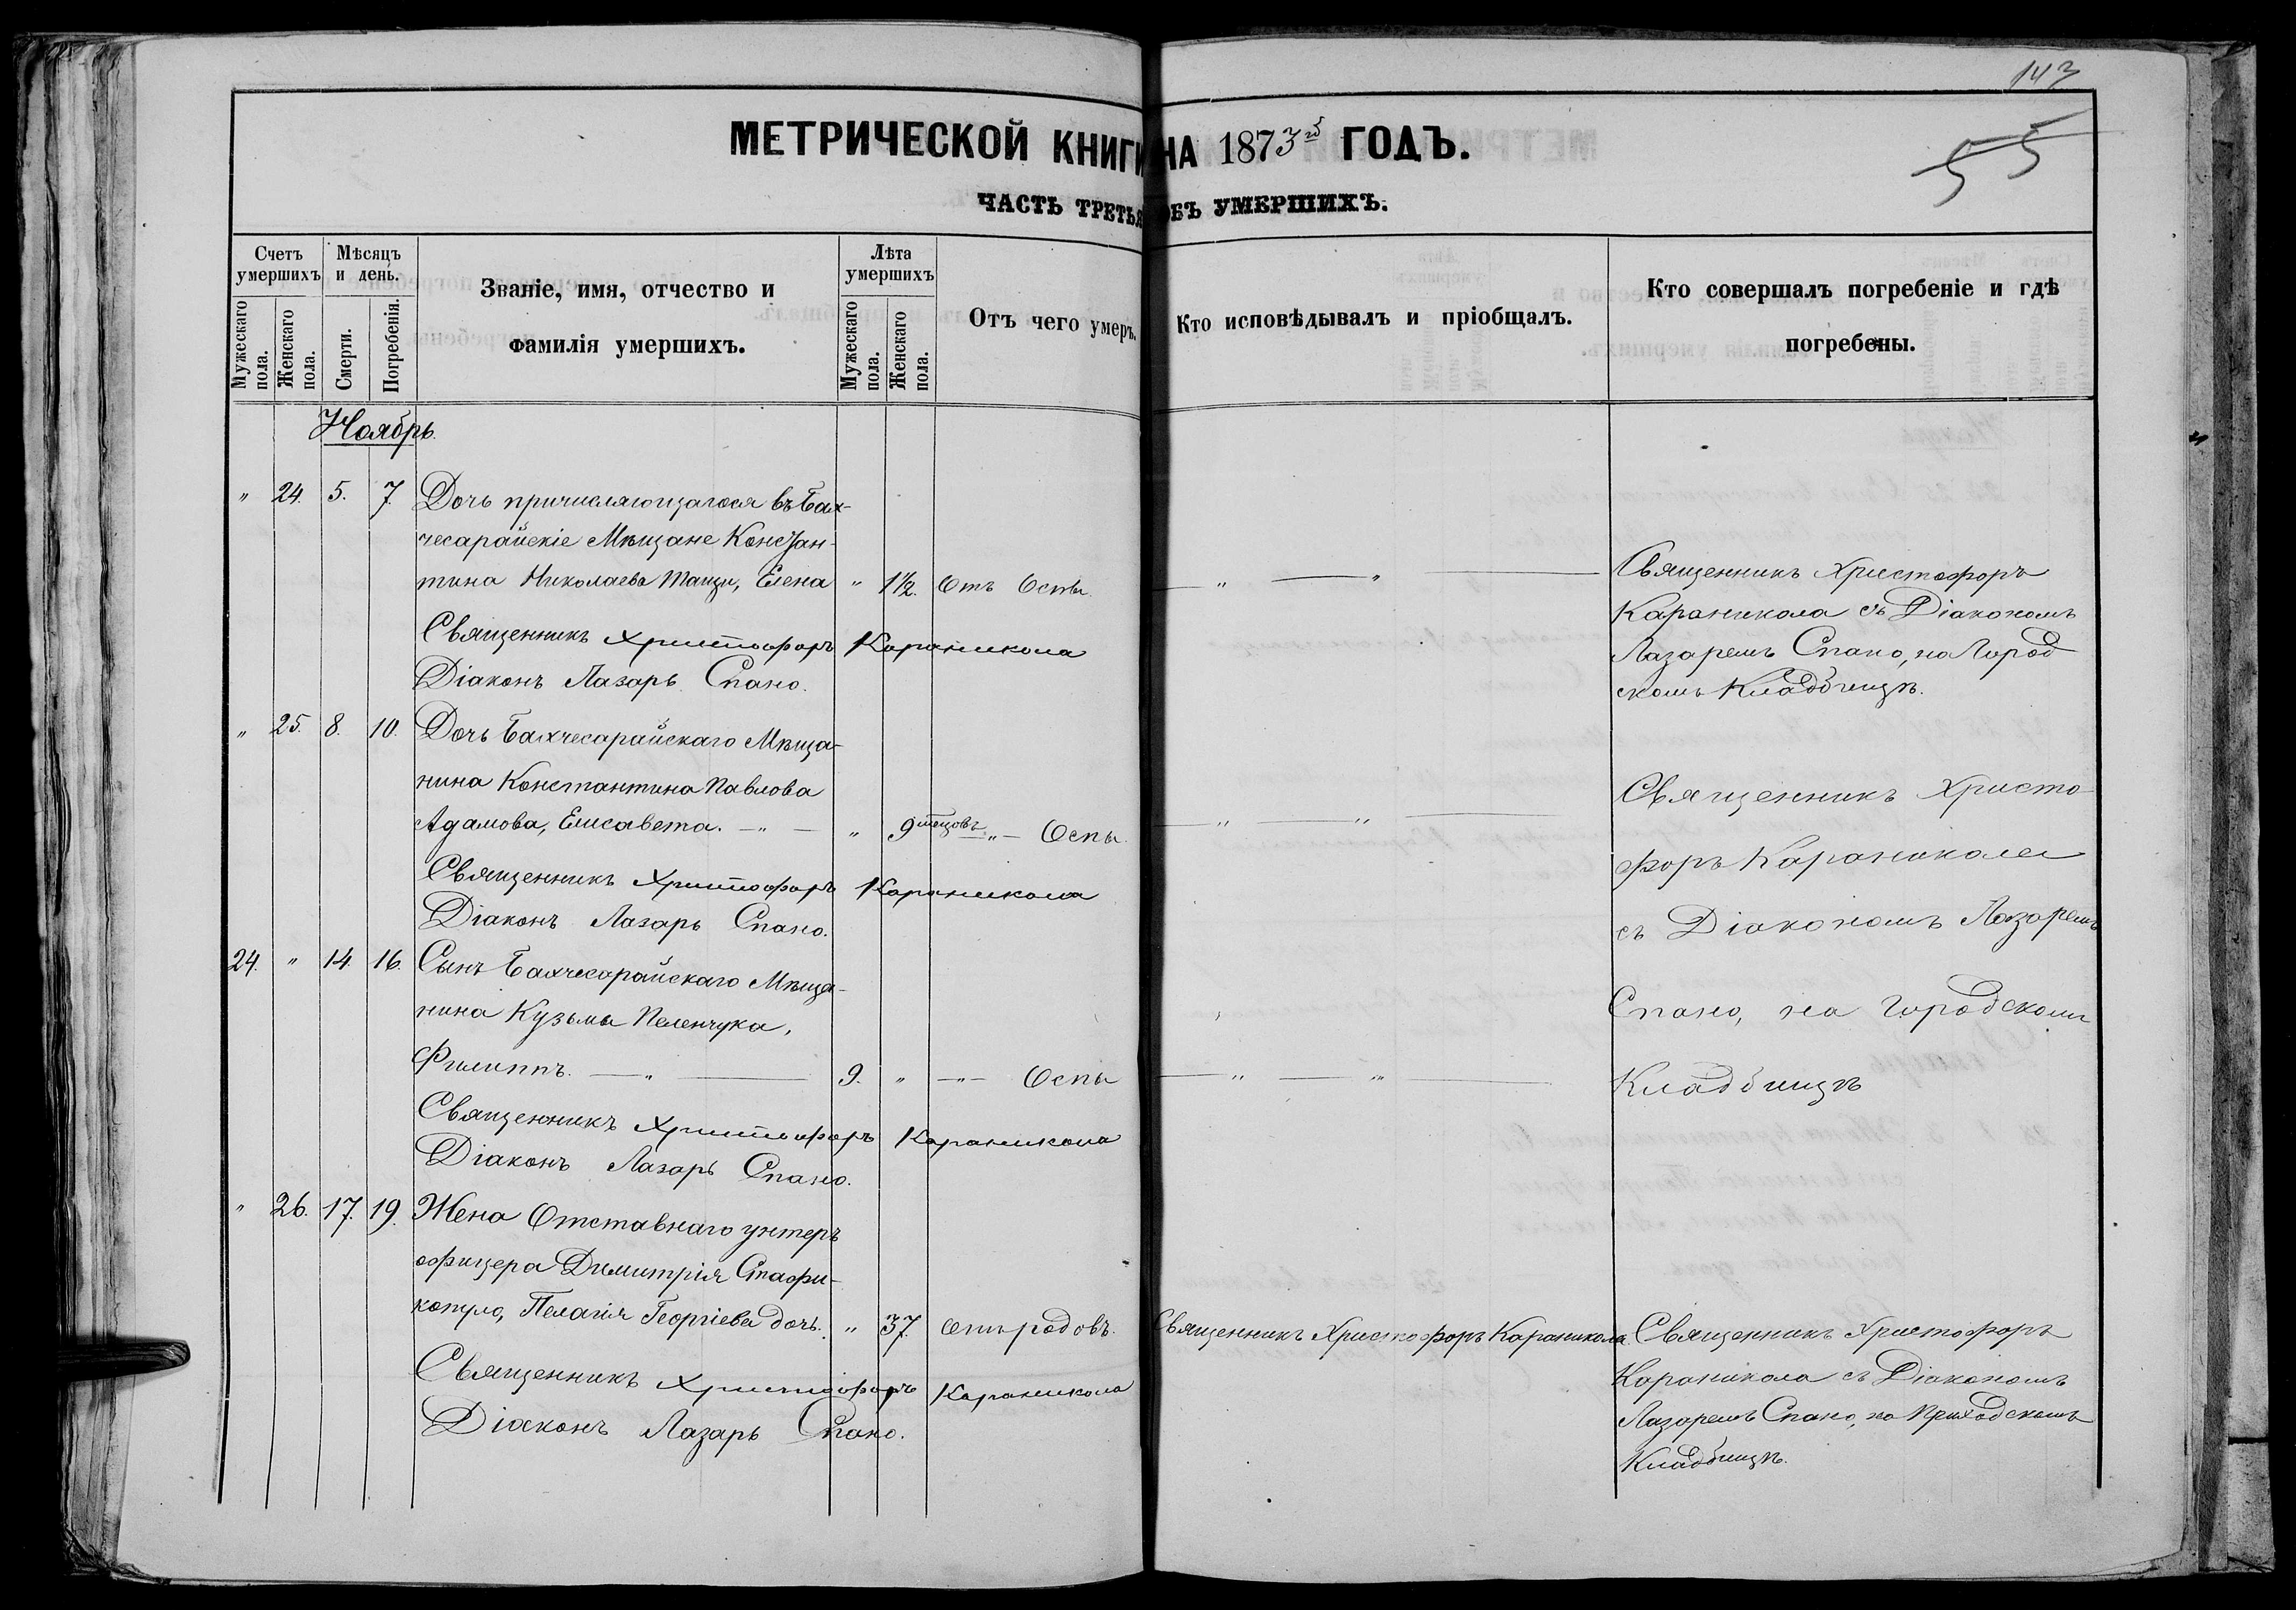 143
55
МЕТРИЧЕСКОЙ КНИГИ НА 1873й ГОДЪ.
ЧАСТЬ ТРЕТЬЯ ОБЪ УМЕРШИХЪ.
Счетъ умершихъ
Мужескаго пола.
Женскаго пола.
Мѣсяцъ и день.
Смерти.
Погребенія.
Званіе, имя, отчество и
фамилія умершихъ.
Лѣта умершихъ
Мужескаго пола.
Женскаго пола.
Отъ чего умеръ.
Кто исповѣдывалъ и пріобщалъ.
Кто совершалъ погребеніе и гдѣ
погребены.
Ноябрь.
" 24. 5. 7. Дочь причисляющагося въ Бах-
чесарайскіе Мѣщане Констан-
тина Николаева Танци, Елена " 1½. Отъ Оспы. — " — " —
Священникъ Христофоръ Караникола
Діаконъ Лазарь Спано.
Священникъ Христофоръ
Караникола съ Діакономъ
Лазаремъ Спано, на Город
скомъ Кладбищѣ.
" 25. 8. 10. Дочь Бахчесарайскаго Мѣща-
нина Константина Павлова
Адамова, Елисавета. — " — " 9 мѣсцовъ — " — Оспы. — " — " —
Священникъ Христофоръ Караникола
Діаконъ Лазарь Спано.
24. " 14 16. Сынъ Бахчесарайскаго Мѣща-
нина Кузьмы Пеленчука,
Филиппъ. — " — 9. " — " — Оспы — " — " —
Священникъ Христофоръ Караникола
Діаконъ Лазарь Спано.
Священникъ Христо-
форъ Караникола
съ Діакономъ Лазаремъ
Спано, на Городскомъ
Кладбищѣ
" 26. 17. 19. Жена Отставнаго унтеръ
офицера Димитрія Стафи-
копуло, Пелагія Георгіева дочь. " 37. отъ родовъ. Священникъ Христофоръ Караникола.
Священникъ Христофоръ Караникола
Діаконъ Лазарь Спано.
Священникъ Христофоръ
Караникола съ Діакономъ
Лазаремъ Спано, на Приходскомъ
Кладбищѣ.